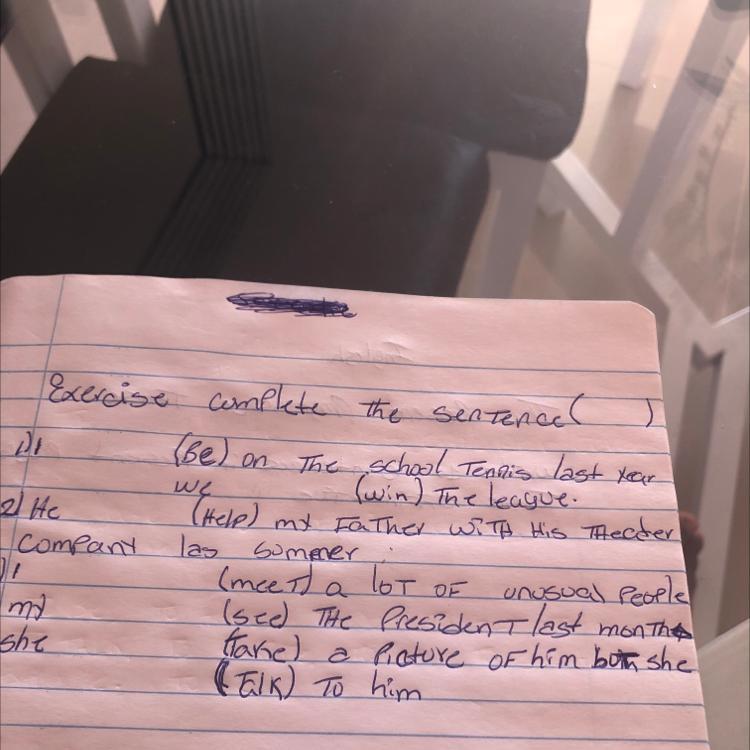 Exercise complete the sentence( )
1) I (Be) on The school Tennis last year
we (win) The league.
2) He (Help) my FaTHer WiTH His THeater
Company las summer.
) I (meeT) a loT OF unusual People
my (see) THe PresidenT last month
she (Take) a Picture OF him but she
(Talk) To him